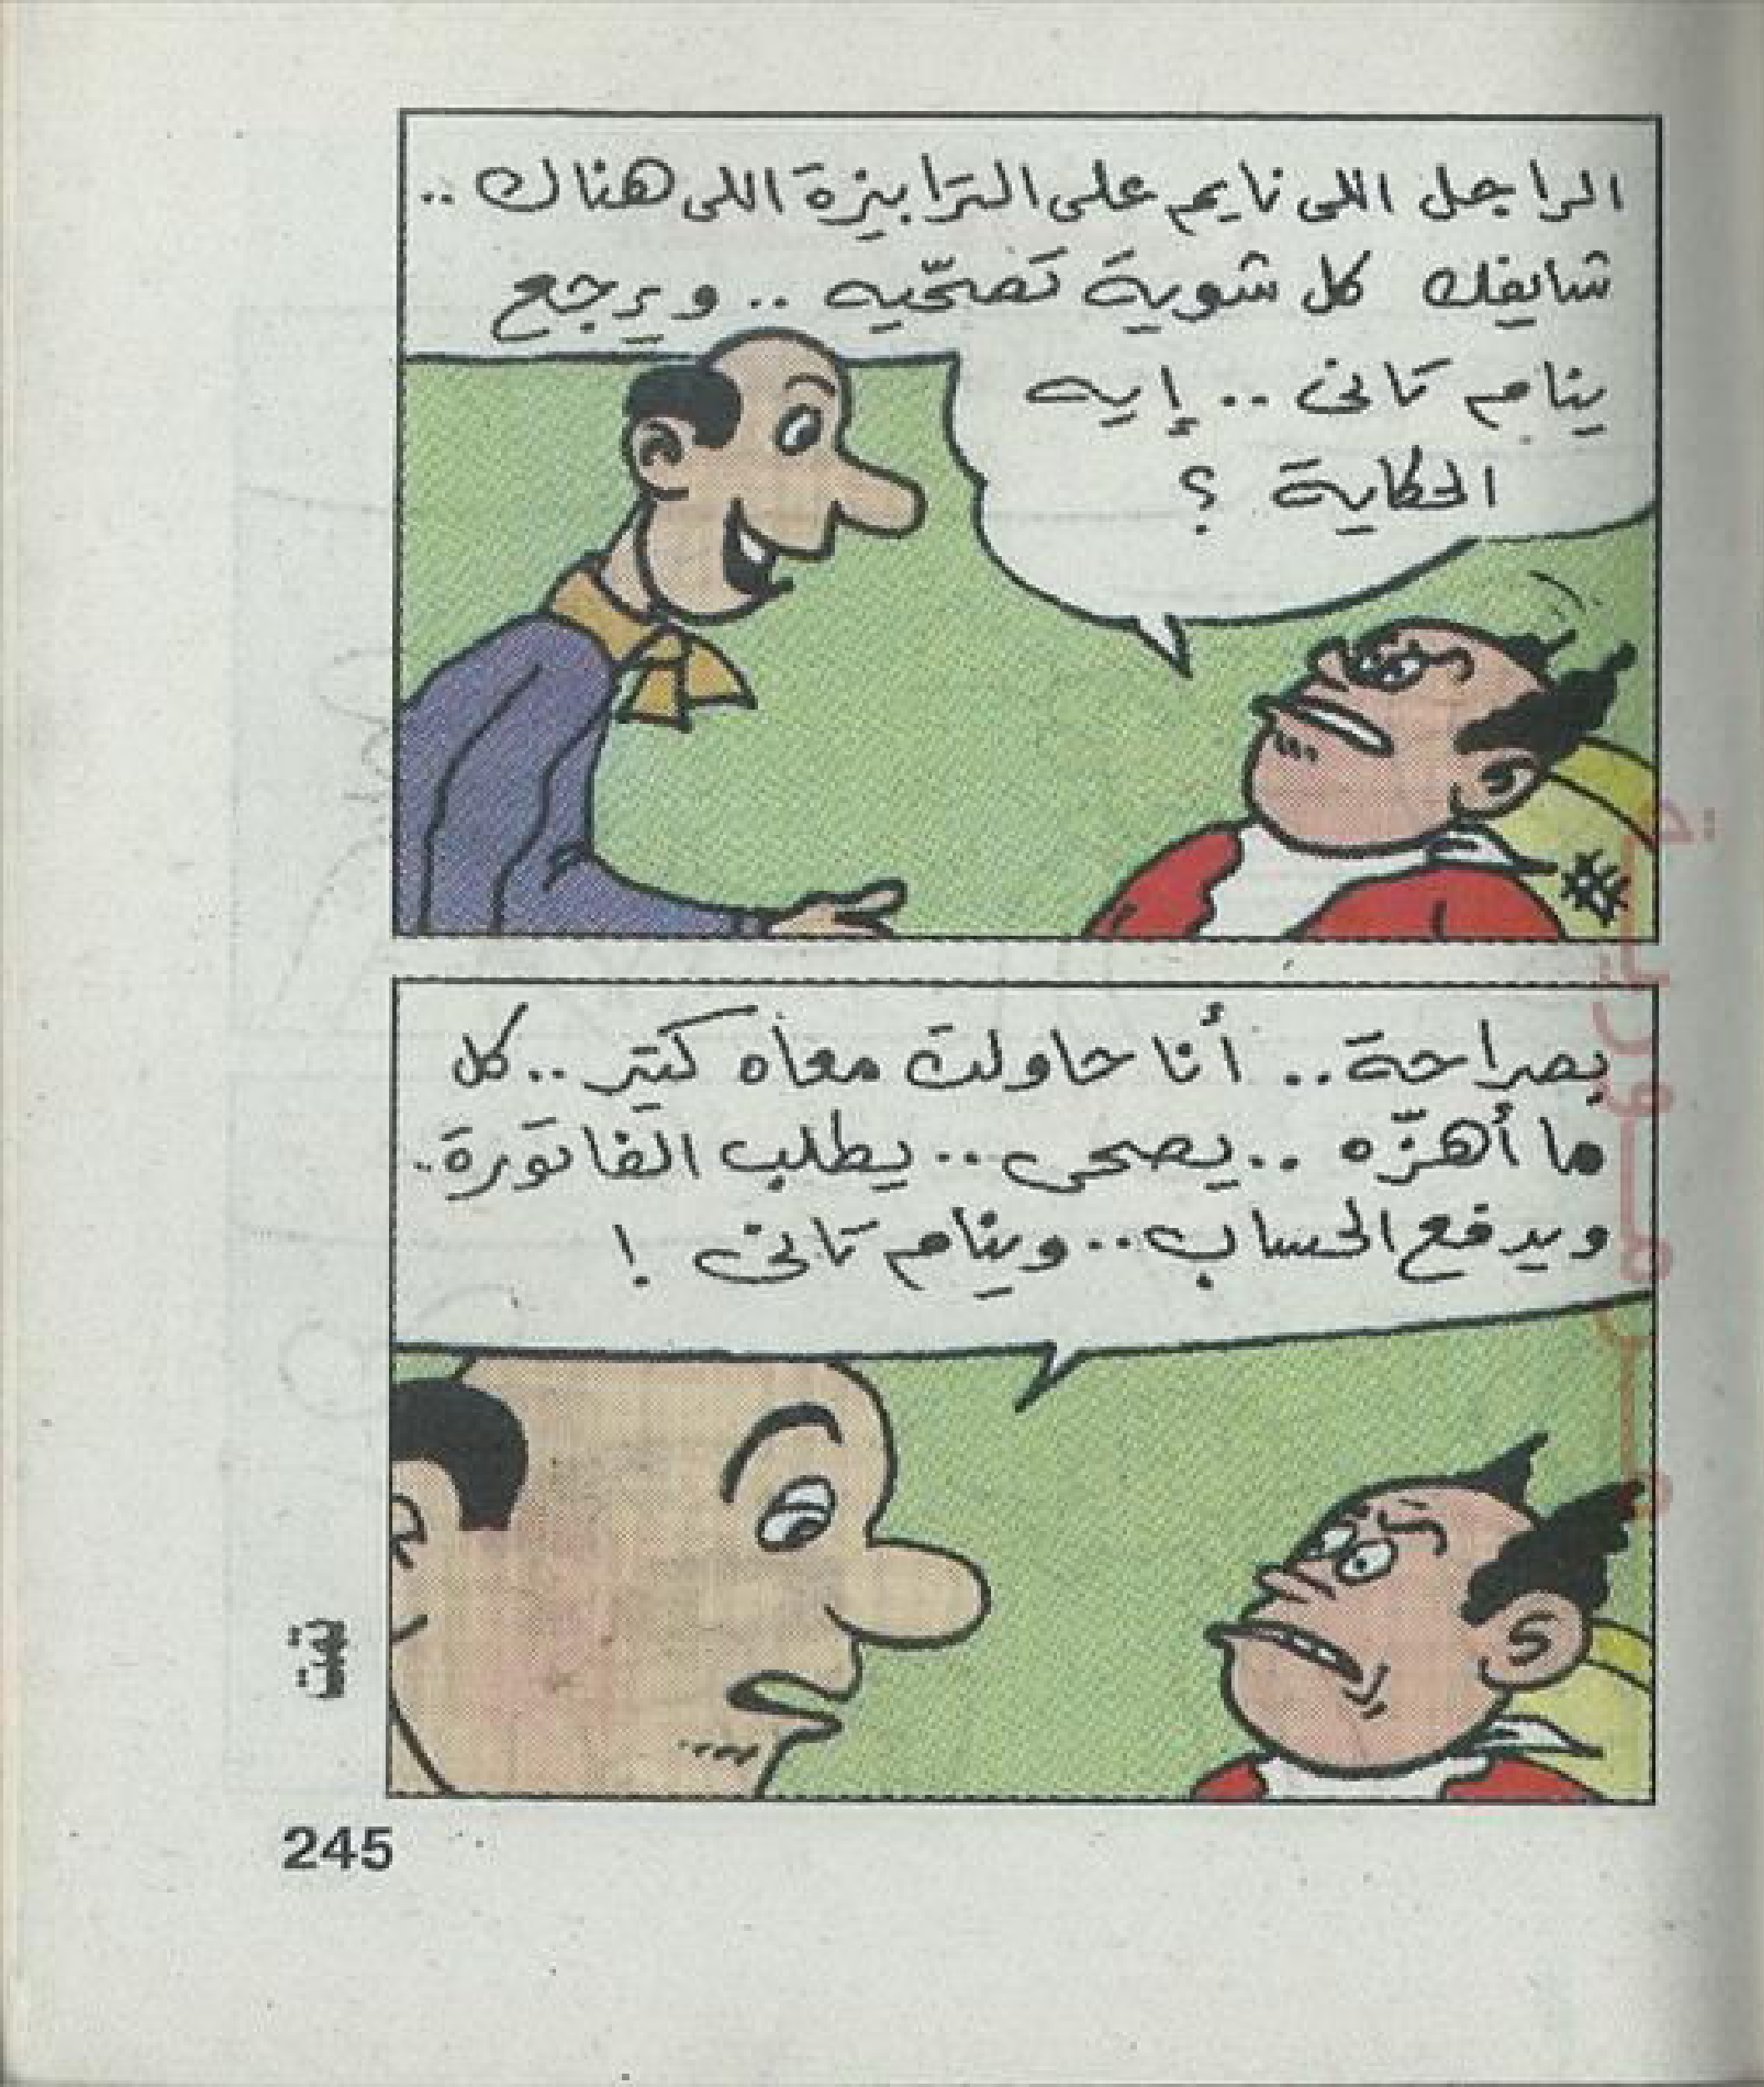 الراجل اللى نايم على الترابيزة اللى هناك ..
شايفك كل شوية تصحّيه .. ويرجع
ينام تانى .. إيه
الحكاية ؟
بصراحة .. أنا حاولت معاه كتير .. كل
ما أهزّه .. يصحى .. يطلب الفاتورة ..
ويدفع الحساب .. وينام تانى !
تمت
245